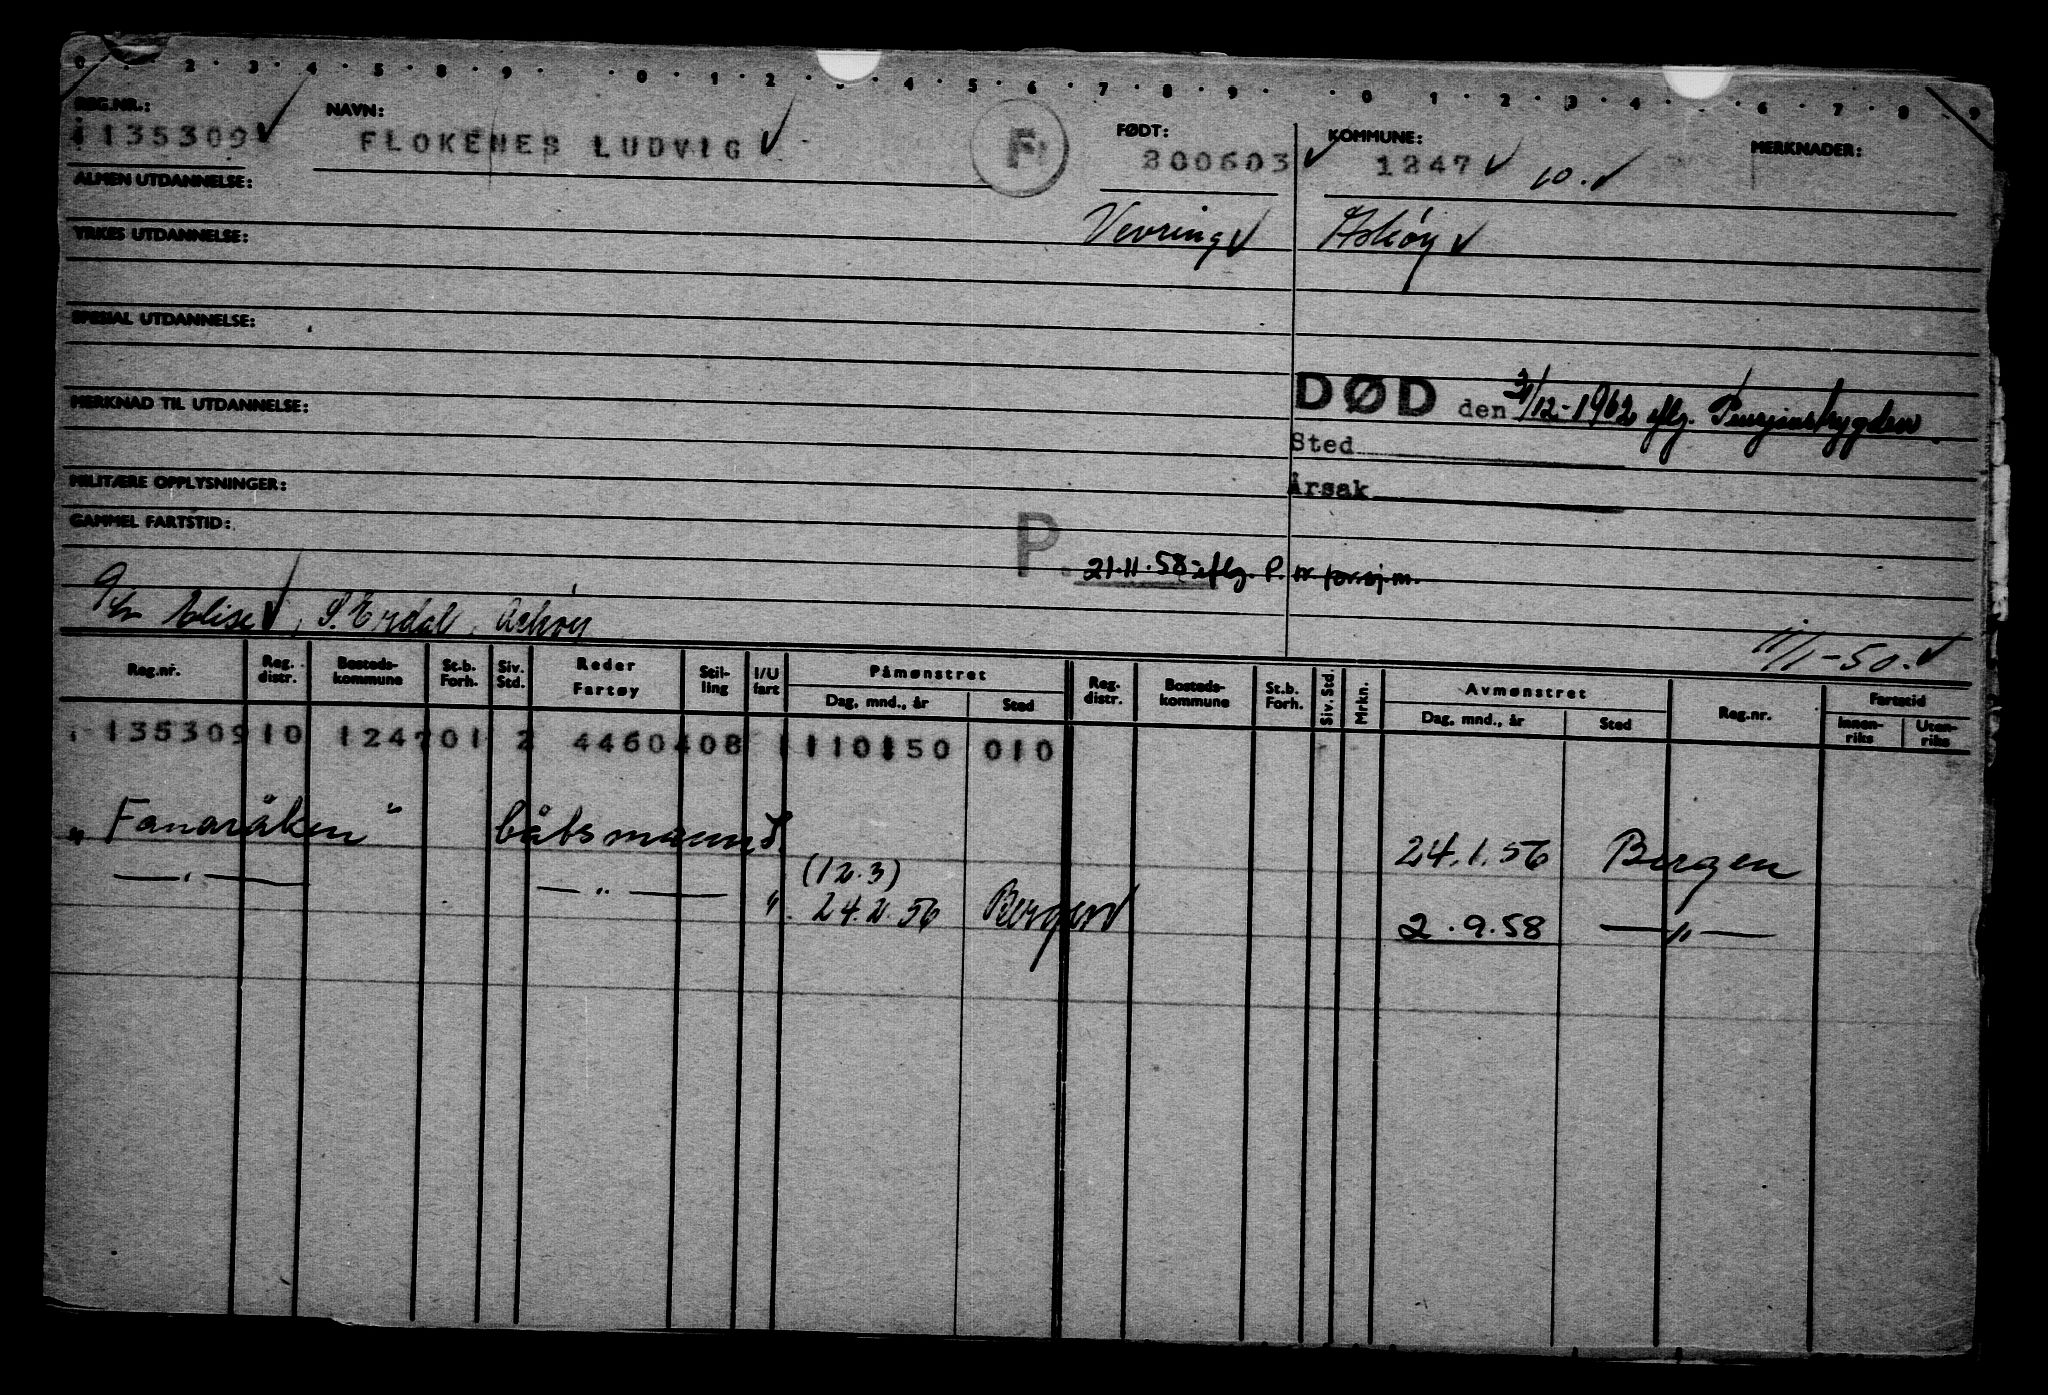 0 . 2 . 3 . 4 . 5 . 8 . 9 . . 0 . 1 . 2 . . 4 . 5 . 6 . 7 . 8 . 9 . . 0 . 1 . 2 . 3 . 4 . . 6 . 7 . 8 . 9
REG.NR.: NAVN: FØDT: KOMMUNE: MERKNADER:
135309 FLOKENES LUDVIG F 200603 1247 10.
ALMEN UTDANNELSE:
Vevring Askøy
YRKES UTDANNELSE:
SPESIAL UTDANNELSE:
DØD den 31/12-1962 iflg. Pensjonstrygden
MERKNAD TIL UTDANNELSE:
Sted
MILITÆRE OPPLYSNINGER:
Årsak
GAMMEL FARTSTID:
P. 21.11.58 iflg. P. tr for sjøm.
Elise, S. Erdal, Askøy
11/1-50.
Reg.nr. Reg. distr. Bosteds-kommune St.b. Forh. Siv. Std. Reder Fartøy Stil-ling I/U fart Påmønstret Dag, mnd., år Sted Reg. distr. Bosteds-kommune St.b. Forh. Siv. Std. Mrkn. Avmønstret Dag, mnd., år Sted Reg.nr. Fartstid Innen-riks Uten-riks
135309 10 1247 01 2 4460 408 1 110150 010
"Fanaråken" båtsmann 24.1.56 Bergen
(12.3)
— " — — " — " 24.2.56 Bergen 2.9.58 — " —